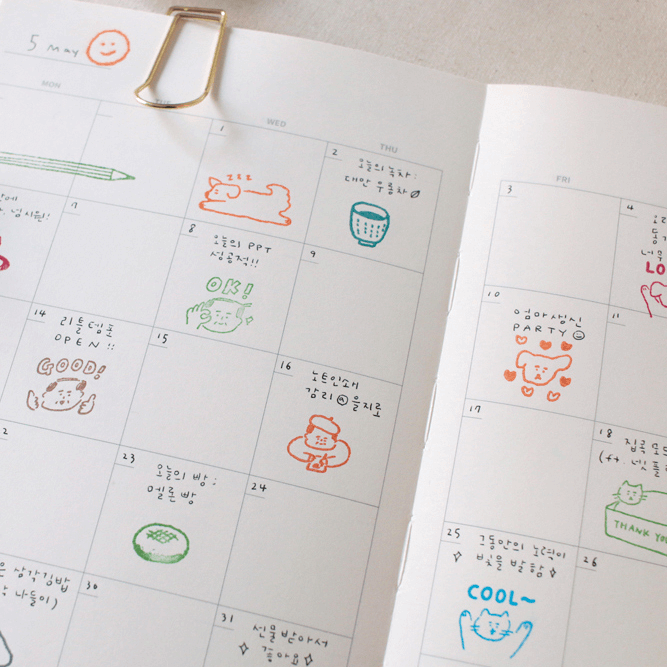 5 May
MON
TUE
WED
THU
FRI
1
zzz
2
오늘의 녹차:
대만 우롱차
3
4
7
8
오늘의 PPT
성공적!!
OK!
9
10
엄마생신
PARTY
11
14
리틀템포
OPEN!!
GOOD!
15
16
노트인쇄
감리 @을지로
17
18
집콕
(ft. 넷플
THANK YOU
23
오늘의 빵:
멜론빵
24
25
그동안의 노력이
빛을 발함
COOL~
26
삼각김밥
나들이)
30
31
선물받아서
좋아요